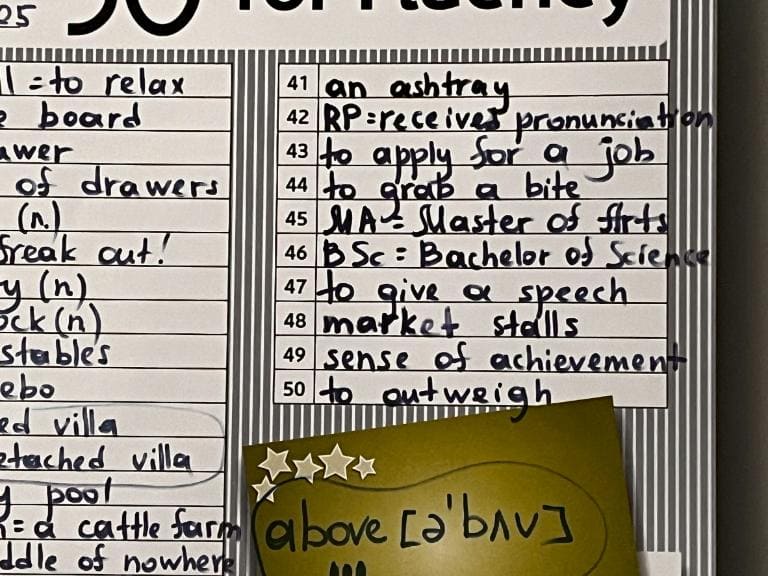 25 50 for Fluency
l = to relax
board
of drawers
(n.)
freak out!
(n)
(n)
stables
villa
villa
pool
= a cattle farm
of nowhere
41 an ashtray
42 RP = receives pronunciation
43 to apply for a job
44 to grab a bite
45 MA = Master of Arts
46 BSc = Bachelor of Science
47 to give a speech
48 market stalls
49 sense of achievement
50 to outweigh
above [ə'bʌv]
!!!